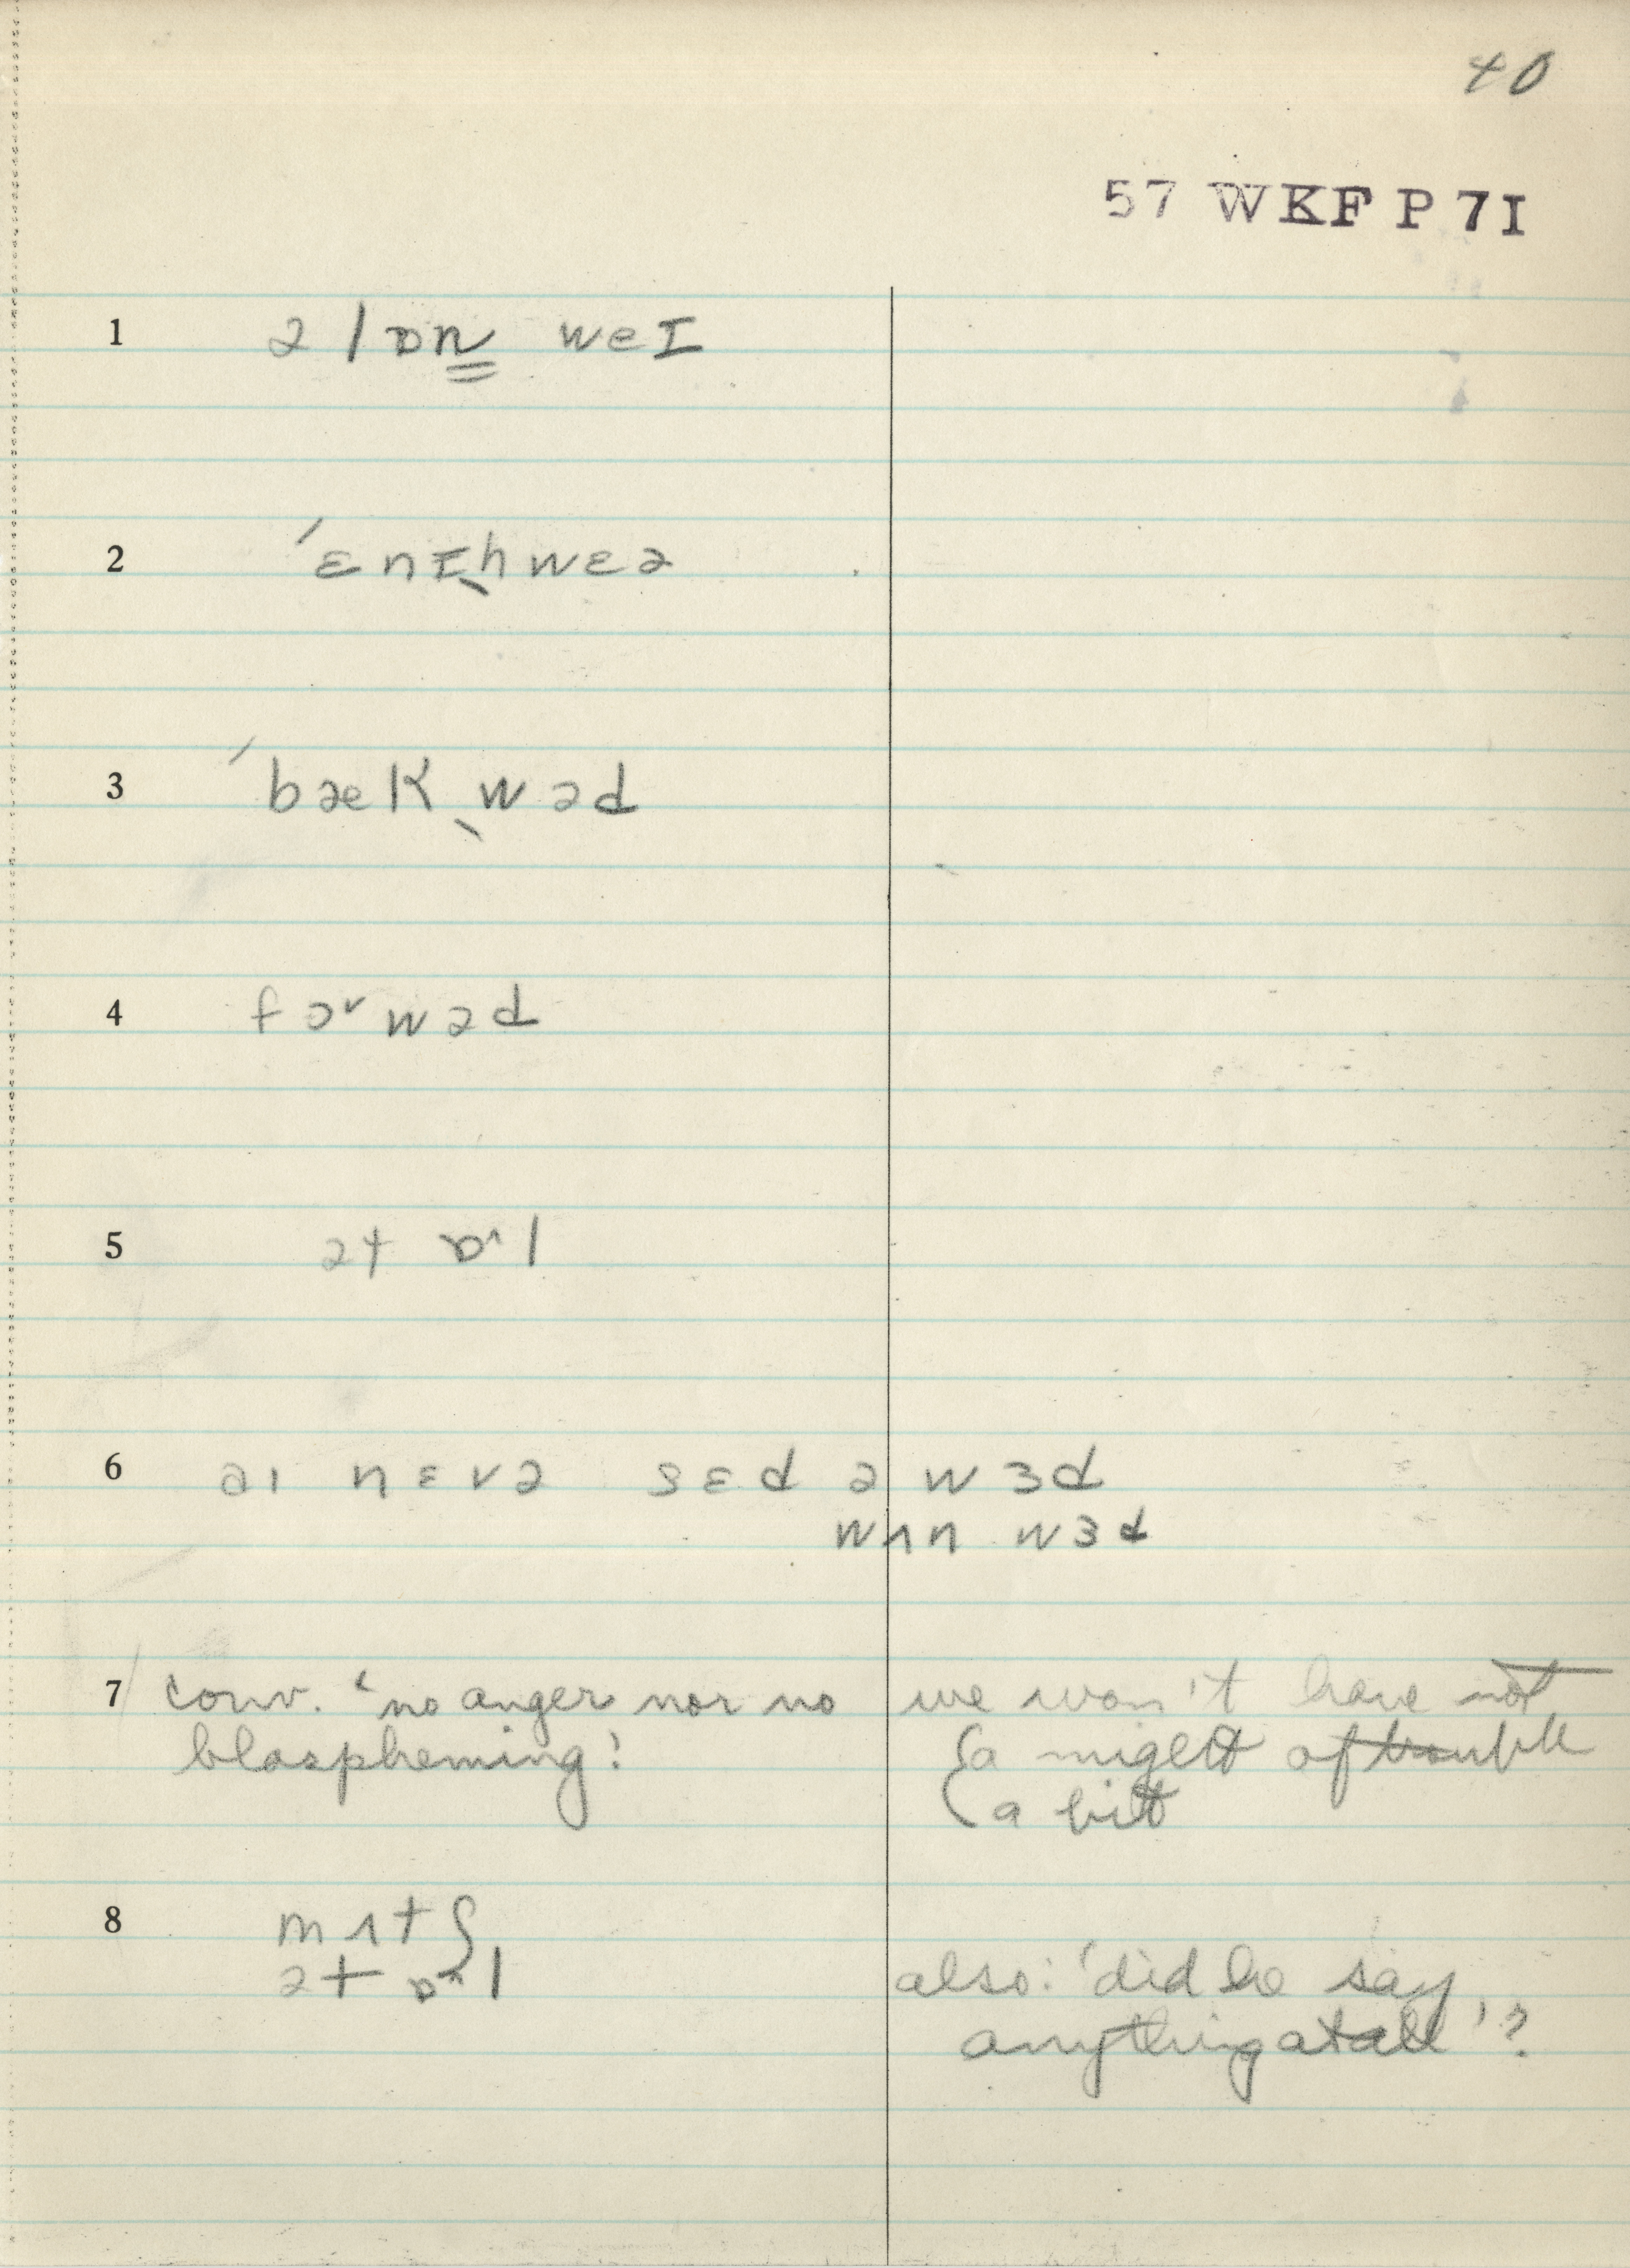 40
57 WKF P 7I
1 ə lɒn weɪ
2 ˈɛnɪˌhwɛə
3 ˈbæk ˌwəd
4 fɔ˞wəd
5 ət ɒˑl
6 aɪ nɛvə sɛd ə wɜd
wʌn wɜd
7 conv. 'no anger nor no we won't have not
blaspheming! {a might of trouble
{a bit
8 mʌtʃ
ət ɒˑl also: 'did he say
anything at all'?